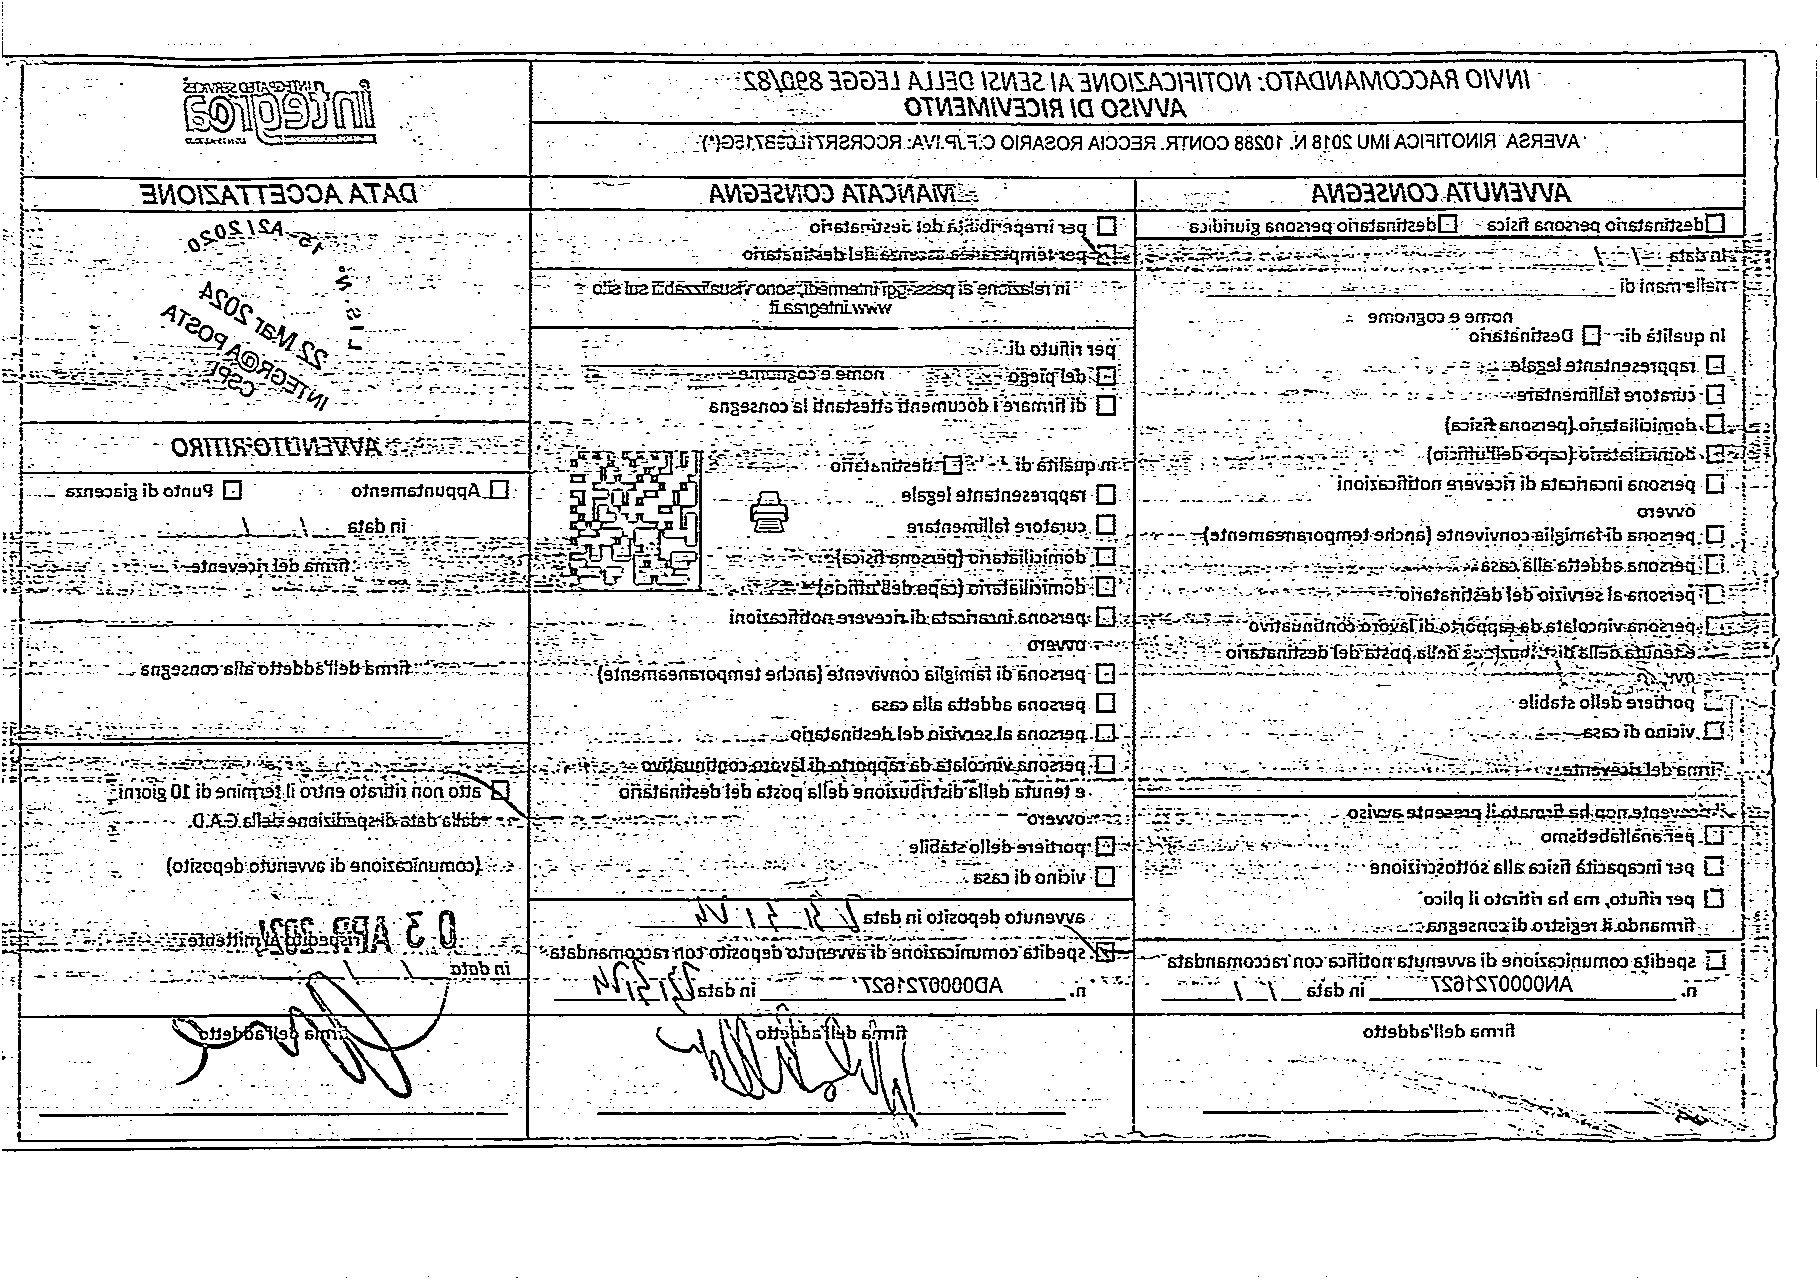 INVIO RACCOMANDATO: NOTIFICAZIONE AI SENSI DELLA LEGGE 890/82
AVVISO DI RICEVIMENTO
integraa
INTEGRATED SERVICES
AVERSA RINOTIFICA IMU 2018 N. 10288 CONTR. RECCIA ROSARIO C.F./P.IVA:
AVVENUTA CONSEGNA
destinatario persona fisica destinatario persona giuridica
in data / /
nelle mani di
nome e cognome
In qualità di: Destinatario
rappresentante legale
curatore fallimentare
domiciliatario (persona fisica)
domiciliatario (capo dell'ufficio)
persona incaricata di ricevere notificazioni
ovvero
persona di famiglia convivente (anche temporaneamente)
persona addetta alla casa
persona al servizio del destinatario
persona vincolata da rapporto di lavoro continuativo
e tenuta della distribuzione della posta del destinatario
portiere dello stabile
vicino di casa
firma del ricevente
il ricevente non ha firmato il presente avviso
per analfabetismo
per incapacità fisica alla sottoscrizione
per rifiuto, ma ha ritirato il plico
firmando il registro di consegna
spedita comunicazione di avvenuta notifica con raccomandata
n. AN0000721627 in data / /
firma dell'addetto
MANCATA CONSEGNA
per irreperibilità del destinatario
per temporanea assenza del destinatario
in relazione ai passaggi intermedi, sono visualizzabili sul sito
www.integraa.it
per rifiuto di:
del piego
nome e cognome
di firmare i documenti attestanti la consegna
in qualità di destinatario
rappresentante legale
curatore fallimentare
domiciliatario (persona fisica)
domiciliatario (capo dell'ufficio)
persona incaricata di ricevere notificazioni
ovvero
persona di famiglia convivente (anche temporaneamente)
persona addetta alla casa
persona al servizio del destinatario
persona vincolata da rapporto di lavoro continuativo
e tenuta della distribuzione della posta del destinatario
ovvero
portiere dello stabile
vicino di casa
avvenuto deposito in data
spedita comunicazione di avvenuto deposito con raccomandata
n. AD0000721627 in data
firma dell'addetto
DATA ACCETTAZIONE
22 Mar 2024
INTEGRA@A POSTA
CSPL
AVVENUTO RITIRO
Appuntamento Punto di giacenza
in data / /
firma del ricevente
firma dell'addetto alla consegna
atto non ritirato entro il termine di 10 giorni
dalla data di spedizione della C.A.D.
(comunicazione di avvenuto deposito)
rispedito al mittente:
03 APR 2024
in data / /
firma dell'addetto